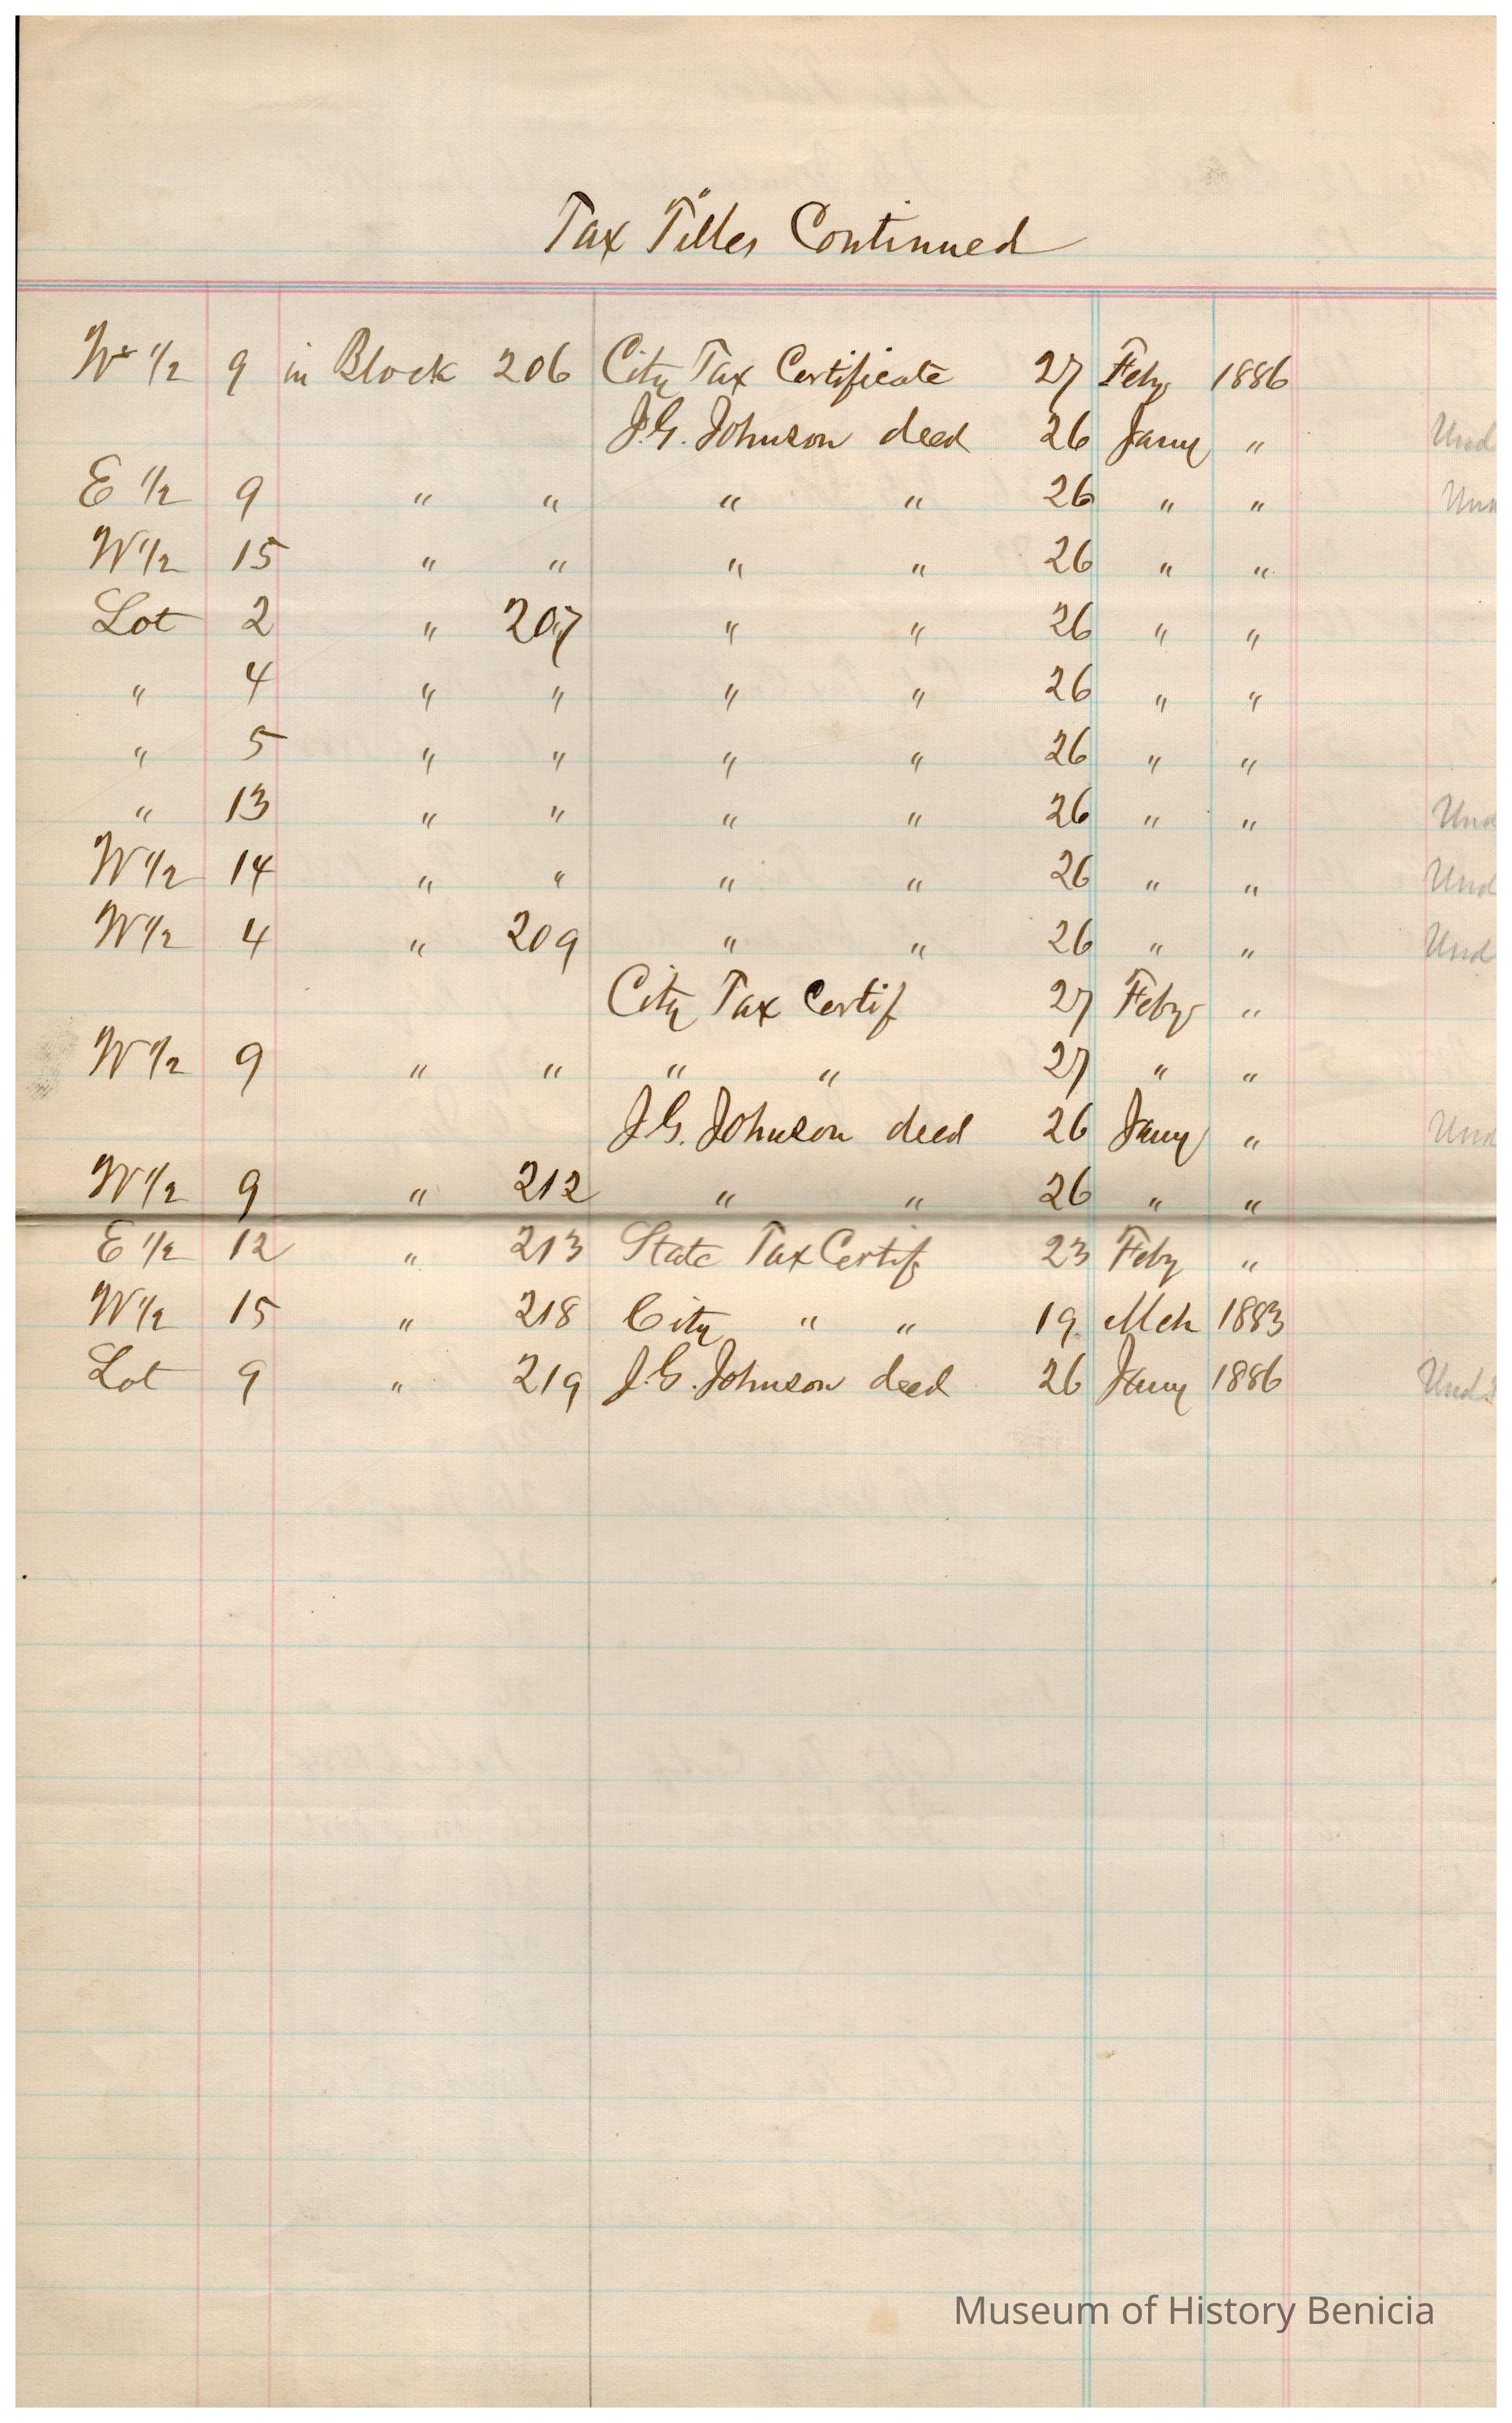 Tax Titles Continued
W 1/2 9 in Block 206 City Tax Certificate 27 Feby 1886
J.G. Johnson deed 26 Jany " Und
E 1/2 9 " " " " 26 " "
W 1/2 15 " " " " 26 " "
Lot 2 " 207 " " 26 " "
" 4 " " " " 26 " "
" 5 " " " " 26 " "
" 13 " " " " 26 " " Und
W 1/2 14 " " " " 26 " " Und
W 1/2 4 " 209 " " 26 " " Und
City Tax Certif 27 Feby "
W 1/2 9 " " " " 27 " "
J.G. Johnson deed 26 Jany " Und
W 1/2 9 " 212 " " 26 " "
E 1/2 12 " 213 State Tax Certif 23 Feby "
W 1/2 15 " 218 City " " 19 Mch 1883
Lot 9 " 219 J.G. Johnson deed 26 Jany 1886 Und
Museum of History Benicia